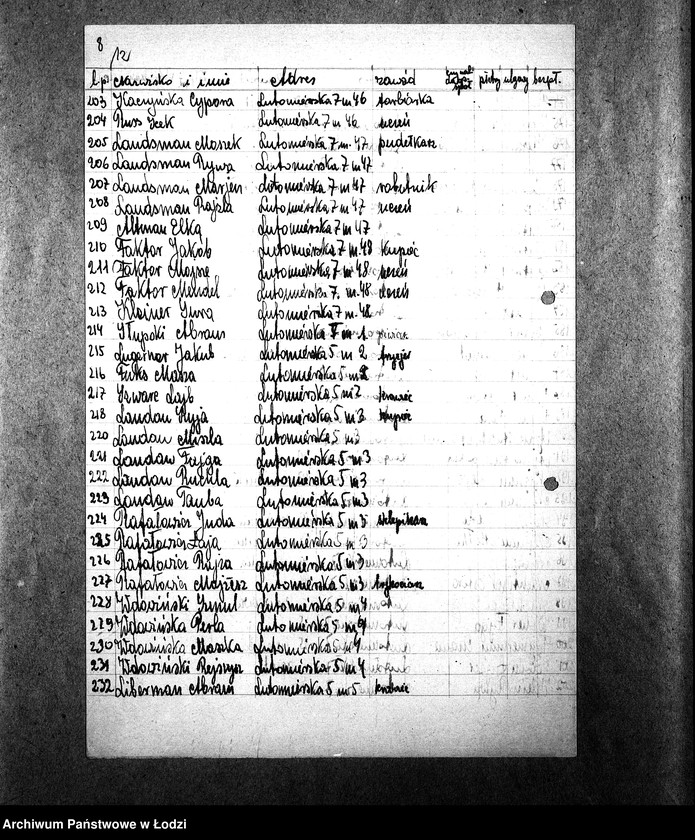 8
/12/
l.p. Nazwisko i imię Adres zawód płatny ulgowy bezpł.
203 Kaczyńska Cypora Lutomierska 7 m 46 farbiarka
204 Russ Icek Lutomierska 7 m 46 uczeń
205 Landsman Moszek Lutomierska 7 m. 47 pudełkarz
206 Landsman Rywa Lutomierska 7 m 47
207 Landsman Marjem Lutomierska 7 m 47 robotnik
208 Landsman Rajzla Lutomierska 7 m 47 uczeń
209 Altman Elka Lutomierska 7 m 47
210 Faktor Jakób Lutomierska 7 m. 48 kupiec
211 Faktor Mojsze Lutomierska 7 m. 48 uczeń
212 Faktor Mendel Lutomierska 7. m. 48 uczeń
213 Klainer Lutomierska 7 m. 48
214 Słupski Abram Lutomierska
215 Jakub Lutomierska 5 m 2 fryzjer
216 Fuks Masza Lutomierska 5 m 2
217 Szwarc Lajb Lutomierska 5 m 2 krawiec
218 Landau Lutomierska 5 m 3 kupiec
220 Landau Lutomierska 5 m 3
221 Landau Fajga Lutomierska 5 m 3
222 Landau Ruchla Lutomierska 5 m 3
223 Landau Tauba Lutomierska 5 m 3
224 Rafałowicz Juda Lutomierska 5 m 3 sklepikarz
225 Rafałowicz Łaja Lutomierska 5 m 3
226 Rafałowicz Lutomierska 5 m 3
227 Rafałowicz Mojżesz Lutomierska 5 m 3
228 Wdowiński Lutomierska 5 m 4
229 Wdowińska Perla Lutomierska 5 m 4
230 Wdowińska Maszka Lutomierska 5 m 4
231 Wdowiński Lutomierska 5 m 4
232 Liberman Abram Lutomierska 5 m 5
Archiwum Państwowe w Łodzi